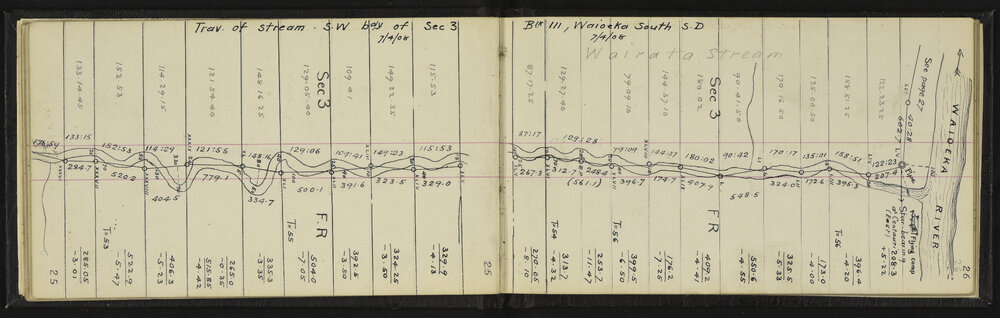 Trav. of stream. S.W bdy of Sec 3
7/4/08
Blk III, Waioeka South S.D
7/4/08
Wairata Stream
133.14.45
152.53
114.29.15
121.54.40
148.16.25
129.05.40
Sec 3
109.41
149.22.35
115.53
87.17.25
129.27.40
79.09.10
144.37.10
180.02
Sec 3
90.41.50
170.16.50
135.00.50
158.51.25
122.23.25
See page 27
WAIOEKA
RIVER
133:15
152:53
114:29
121:55
148:16
129:06
109:41
149:23
115:53
87:17
129:28
79:09
144:37
180:02
90:42
170:17
135:01
158:51
122:23
520.2
404.5
779.1
334.7
500.1
391.6
323.5
329.0
267.3
312.7
248.4
(561.1)
396.7
174.7
407.9
548.5
324.0
172.6
395.3
207.4
F.R
F.R
T=53
T=55
T=54
T=56
T=56
285.05
-3.01
522.9
-5.47
406.3
-5.23
265.0
-0.35
515.85
-4.42
335.3
-3.35
504.0
-7.05
392.5
-3.50
324.25
-3.50
329.9
-4.13
270.05
-8.10
313.7
-4.32
253.7
-11.47
399.5
-6.50
176.2
-7.25
409.2
-4.41
550.6
-4.55
325.5
-5.33
173.0
-4.00
396.4
-4.20
208.3
+5.22
Flying camp
25
25
26